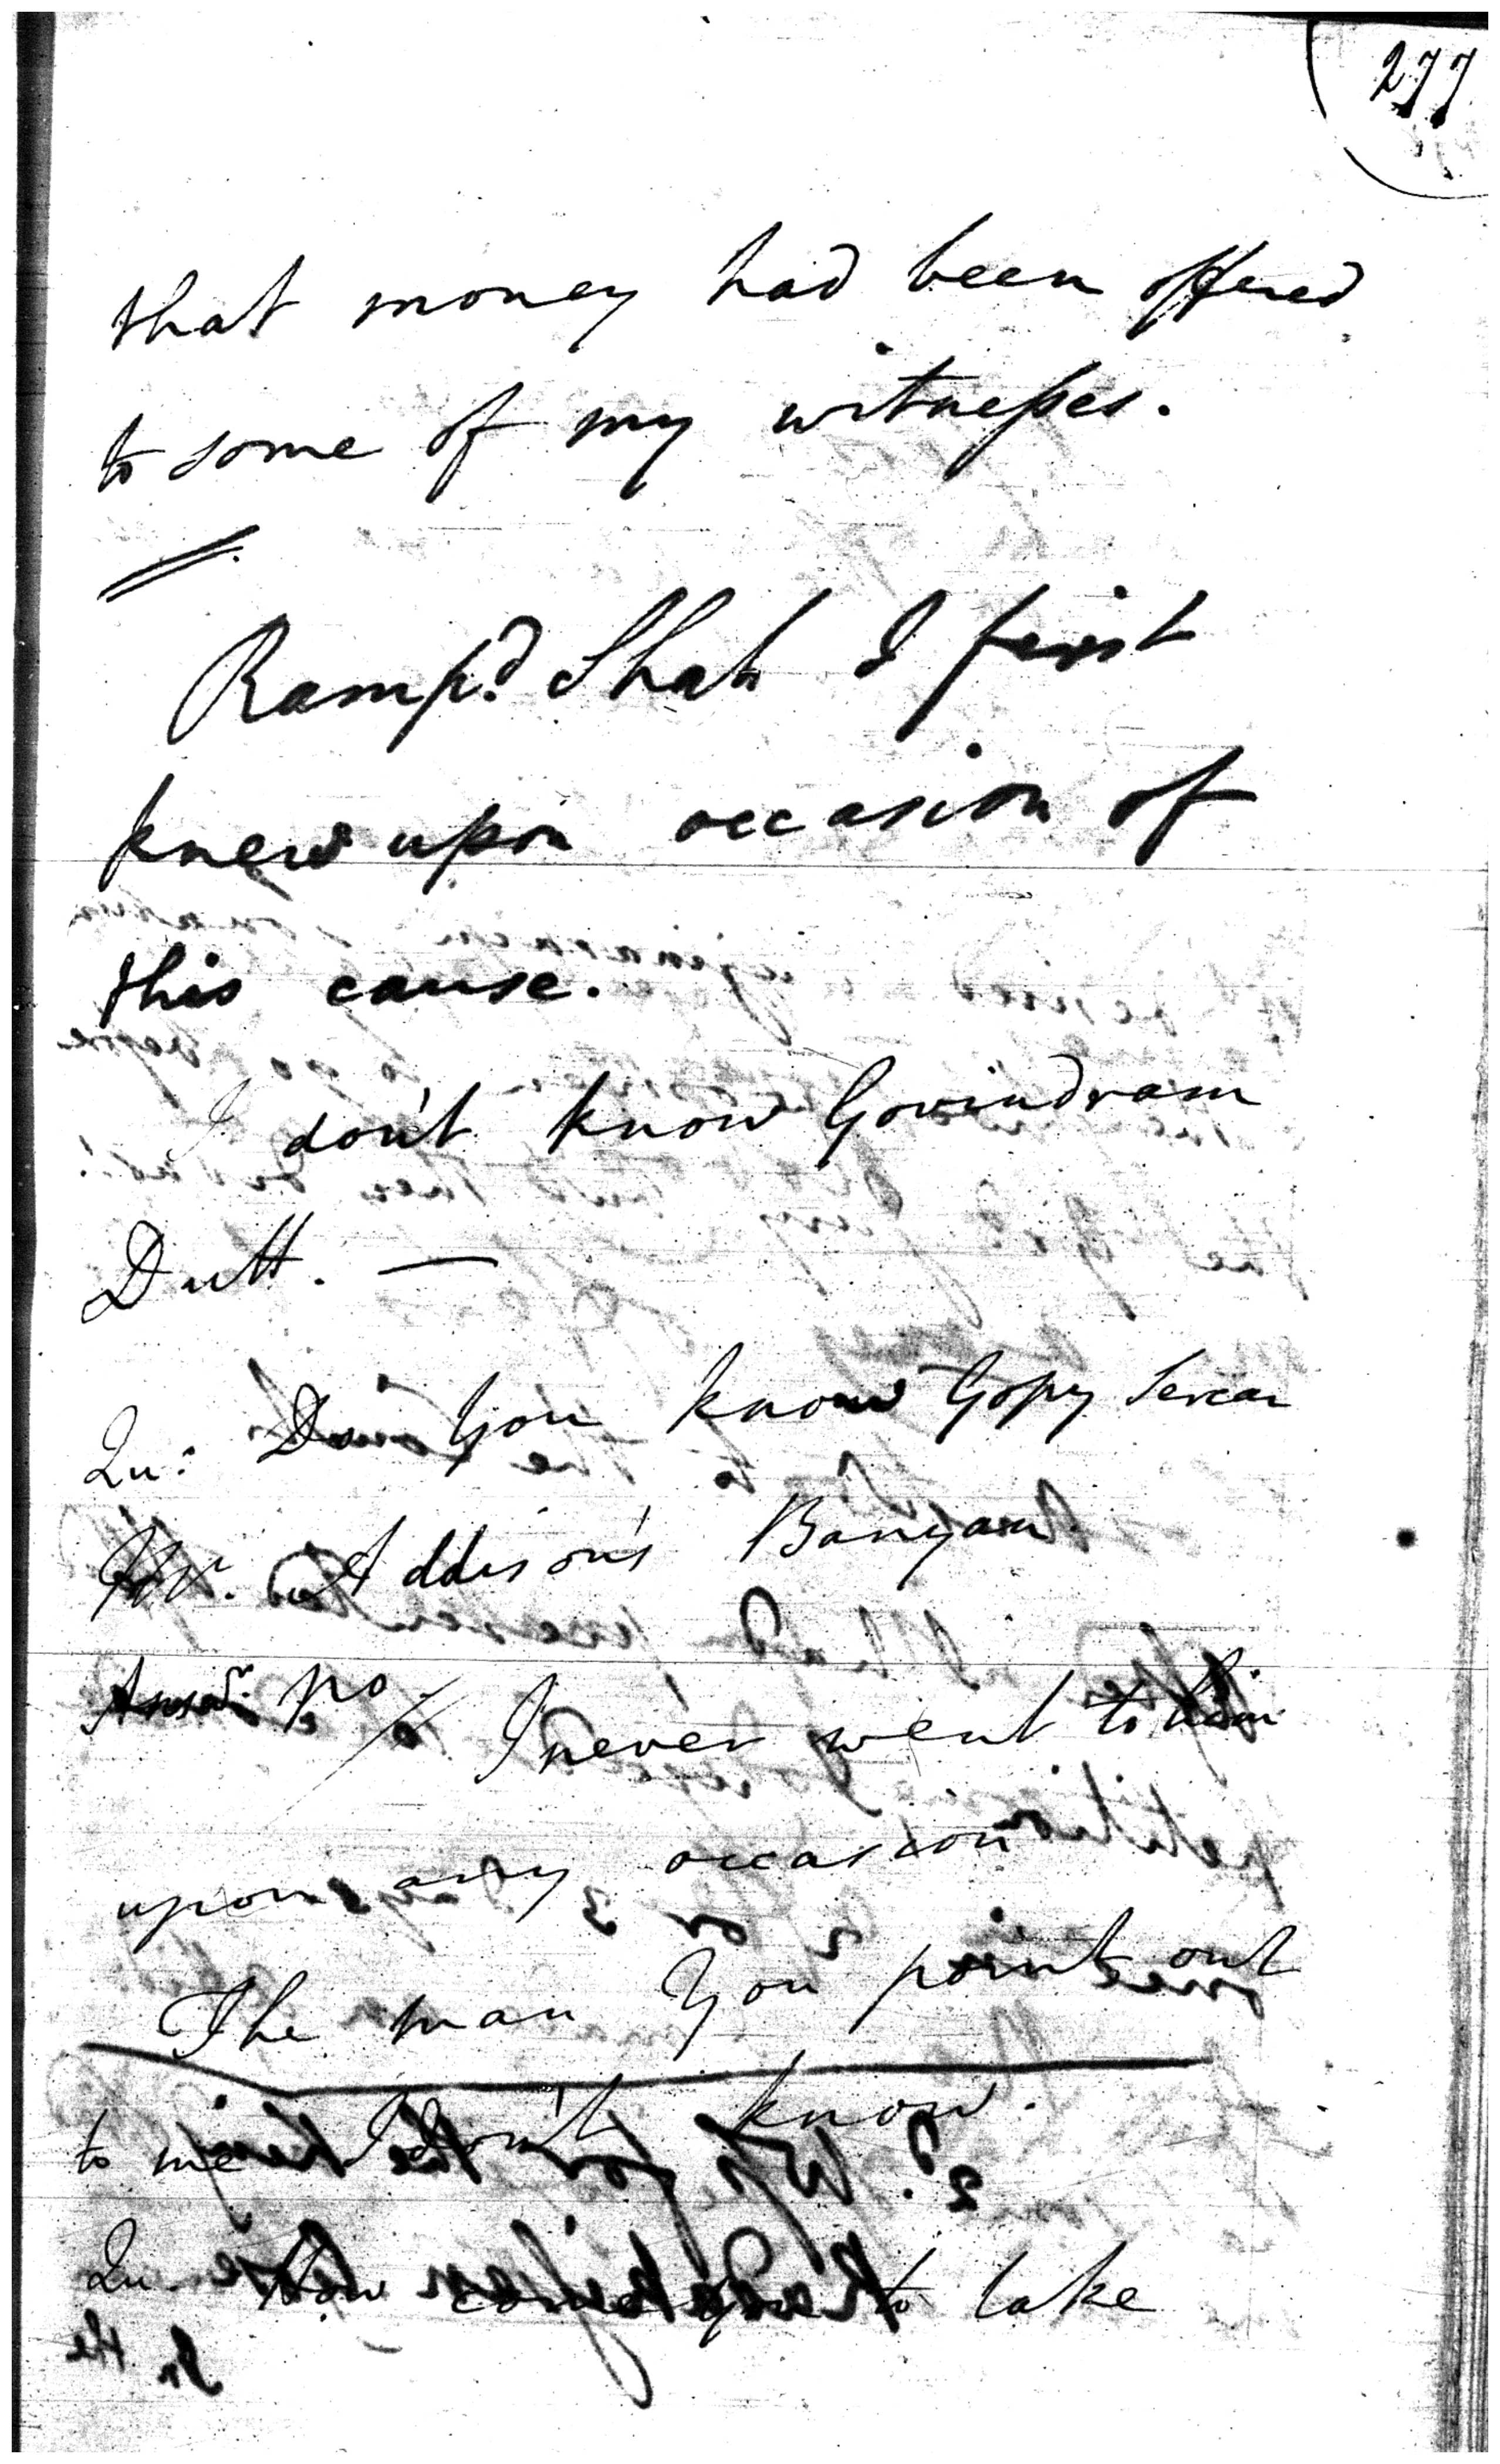 277
that money had been offered
to some of my witnesses.
Ramp.d Shah I first
knew upon occasion of
this cause.
I don't know Govindram
Dutt. —
Qu: Do You know Gopy Sercar
Mr. Addison's Banyan
Answr. No / I never went to him
upon any occasion
The man You point out
to me I don't know.
Qu How come you to take